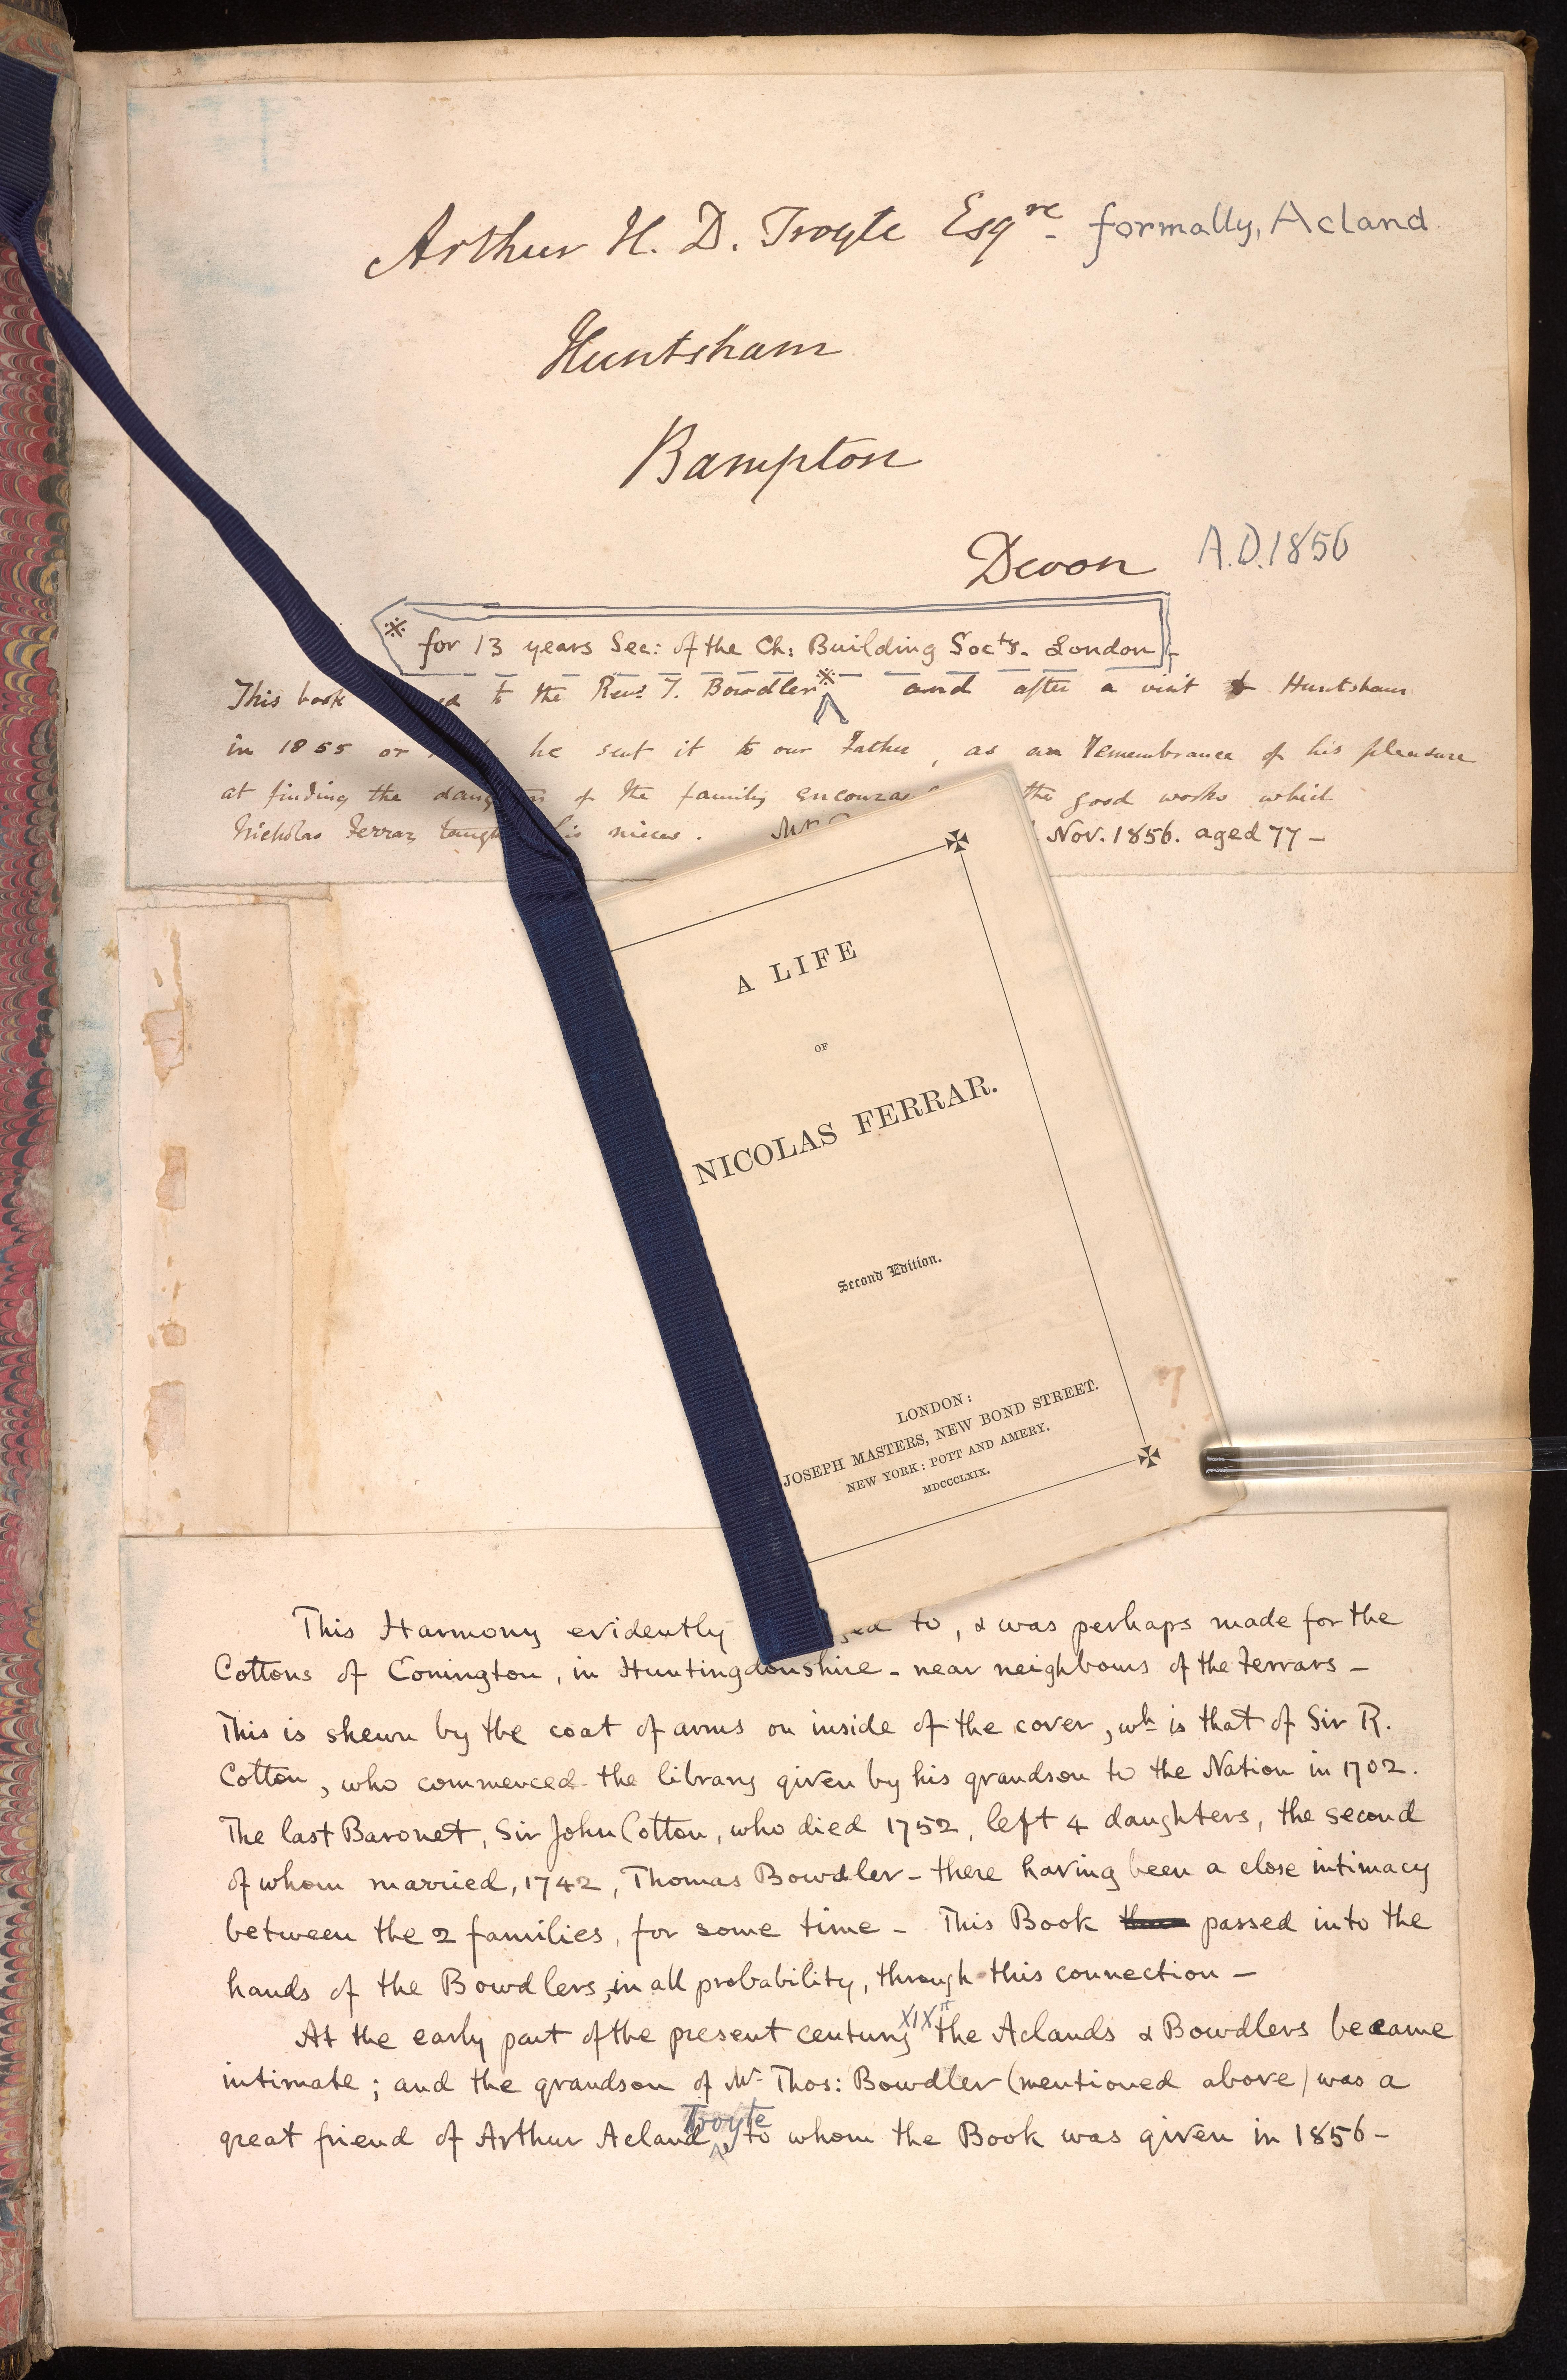 Arthur H. D. Troyte Esqre. formally, Acland
Huntsham
Bampton
Devon A.D. 1856
※ for 13 years Sec: of the Ch: Building Socty. London
This book to the Revd. T. Bowdler※ and after a visit to Huntsham
in 1855 or he sent it to our Father, as an remembrance of his pleasure
at finding the of the family the good works which
Nicholas Ferrar his nieces. Mr Nov. 1856. aged 77 –
A LIFE
OF
NICOLAS FERRAR.
Second Edition.
LONDON:
JOSEPH MASTERS, NEW BOND STREET.
NEW YORK: POTT AND AMERY.
MDCCCLXIX.
This Harmony evidently to, & was perhaps made for the
Cottons of Conington, in Huntingdonshire – near neighbours of the Ferrars –
This is shewn by the coat of arms on inside of the cover, wh. is that of Sir R.
Cotton, who commenced the library given by his grandson to the Nation in 1702.
The last Baronet, Sir John Cotton, who died 1752, left 4 daughters, the second
of whom married, 1742, Thomas Bowdler – there having been a close intimacy
between the 2 families, for some time – This Book passed into the
hands of the Bowdlers, in all probability, through this connection –
At the early part of the present century XIXth the Aclands & Bowdlers became
intimate; and the grandson of Mr. Thos: Bowdler (mentioned above) was a
great friend of Arthur Acland Troyte, to whom the Book was given in 1856 –